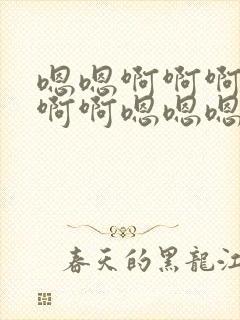 嗯嗯啊啊啊
啊啊嗯嗯嗯
春天的黑龍江